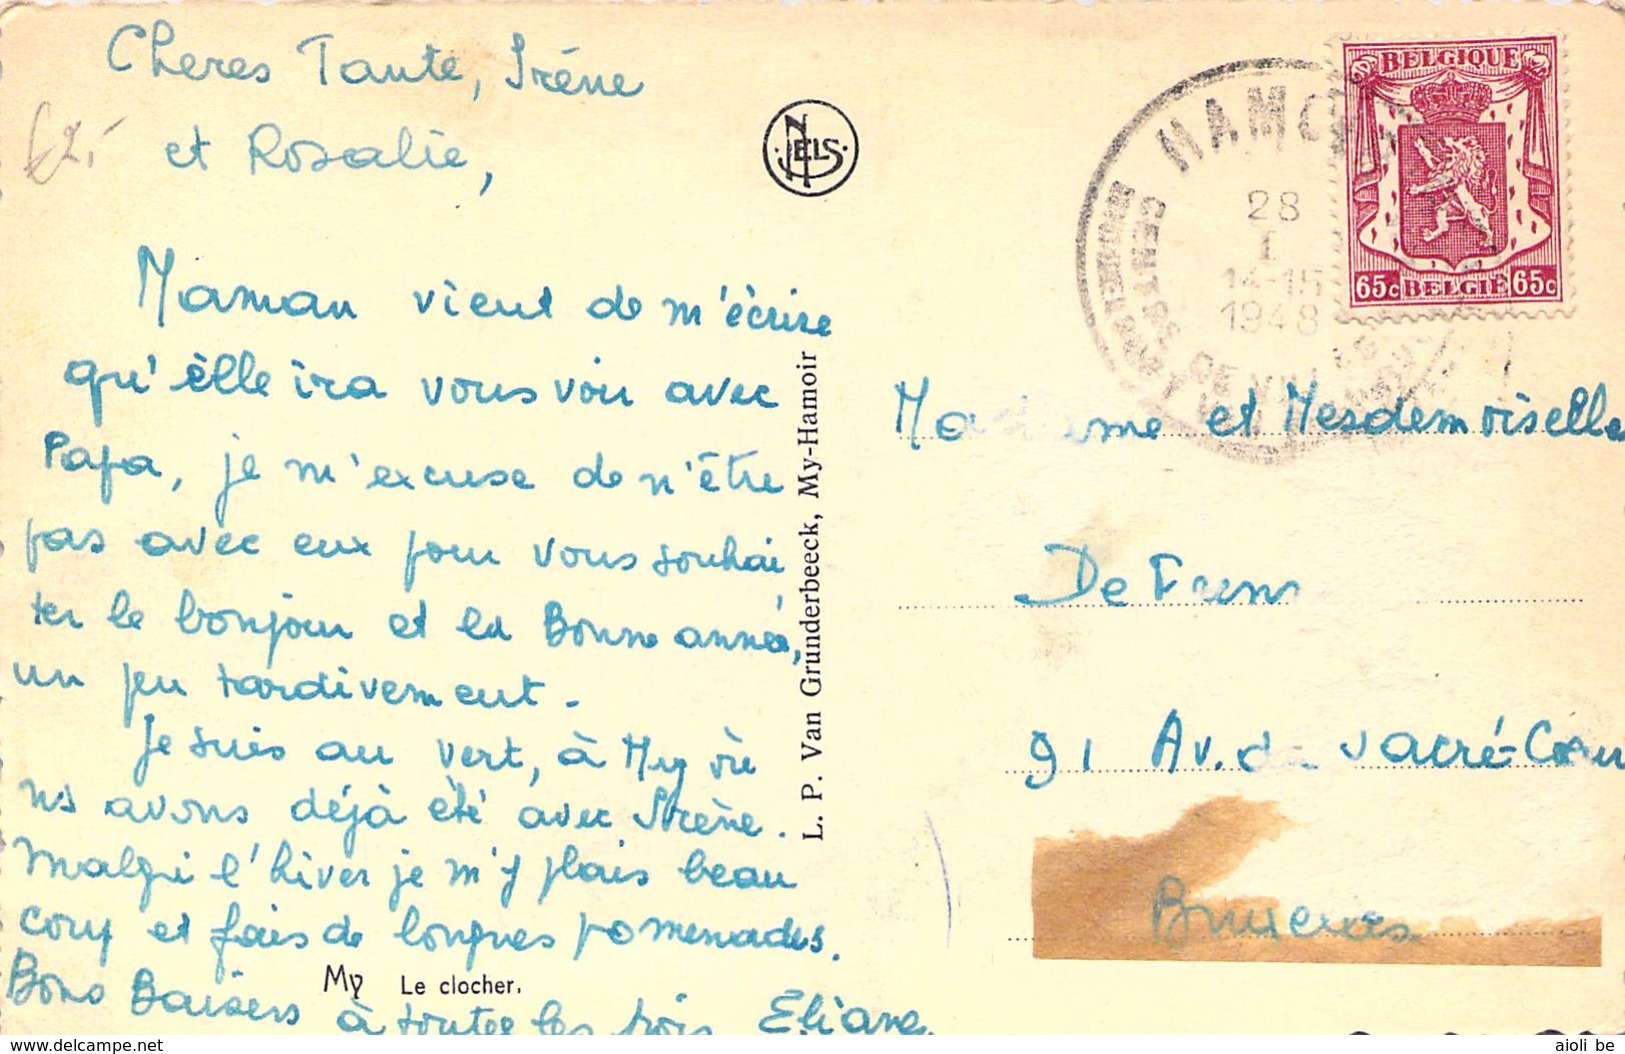 Cheres Tante, Iréne
et Rosalie,
Maman vient de m'écrire
qu'èlle ira vous voir avec
Papa, je m'excuse de n'être
pas avec eux pour vous souhai
ter le bonjour et la Bonne année,
un peu tardivement.
Je suis au vert, à My où
ns avons déjà été avec Irène.
Malgré l'hiver je m'y plais beau
coup et fais de longues promenades.
Bons Baisers à toutes les trois Eliane.
My Le clocher.
NELS
L. P. Van Grunderbeeck, My-Hamoir
HAMOIR
28
I
14-15
1948
BELGIQUE
65c BELGIE 65c
Madame et Mesdemoiselle
De
91 Av. du Sacré-Cœu
Bruxelles
aioli be
www.delcampe.net